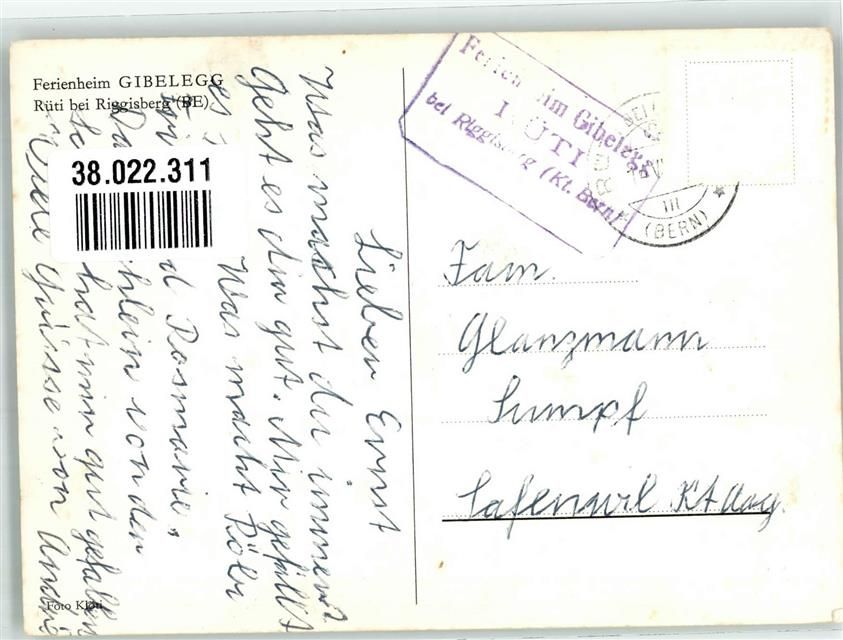 Ferienheim GIBELEGG
Rüti bei Riggisberg (BE)
38.022.311
Lieben Ernst
Was machst du immer?
Geht es dir gut. Mir gefällt
es
Was macht Röbi
d Rosmarie
von den
hat mir gut gefallen
Viele Grüsse von
Foto Klöti
Ferienheim Gibelegg
RÜTI
bei Riggisberg (Kt. Bern)
III
(BERN)
Fam.
Glanzmann
Sumpf
Safenwil Kt Aag.